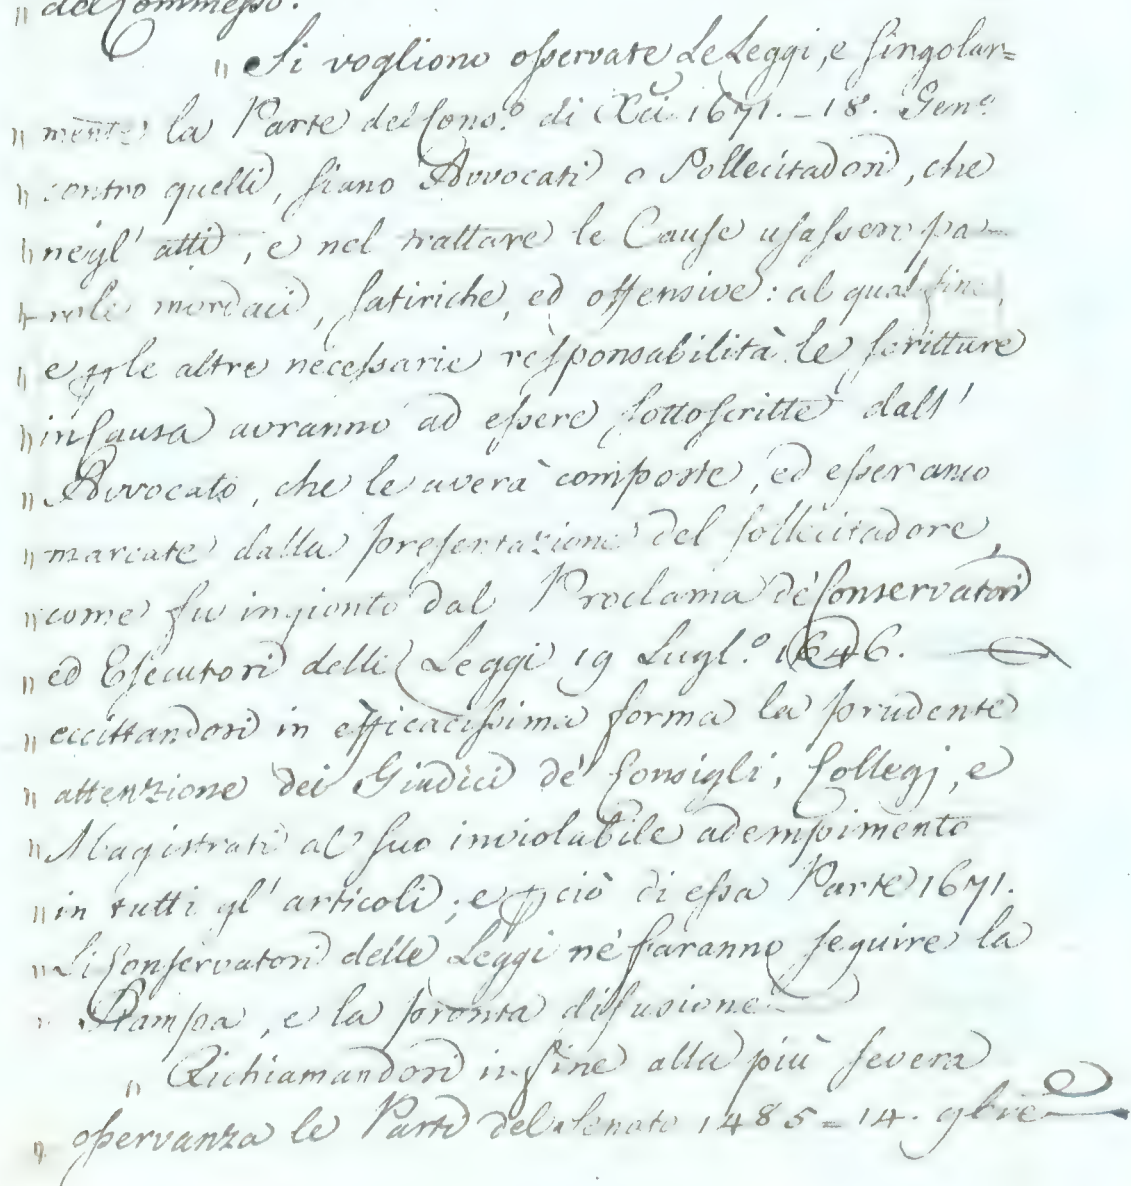 " del Commesso.
" Si vogliono osservate le Leggi, e singolar=
" mente la Parte del Cons.º di Xci 1671. - 18. Gen.º
" contro quelli, siano Avvocati o Sollecitadori, che
" negl' atti, e nel trattare le Cause usassero pa-
" role mordaci, satiriche, ed offensive: al qual fine,
" e p le altre necessarie responsabilità le scritture
" in Causa avranno ad essere sottoscritte dall'
" Avvocato, che le averà composte, ed esseranno
" marcate dalla presentazione del sollecitadore,
" come fu ingionto dal Proclama de' Conservatori
" ed Esecutori delli Leggi 19 Lugl.º 1646.
" eccittandosi in efficacissima forma la prudente
" attenzione dei Giudici de' Consigli, Collegj, e
" Magistrati al suo inviolabile adempimento
" in tutti gl' articoli; e p ciò di essa Parte 1671.
" Li Conservatori delle Leggi ne faranno seguire la
" Stampa, e la pronta difusione.
" Richiamandosi in fine alla più severa
" osservanza le Parti del Senato 1485 = 14. 9bre